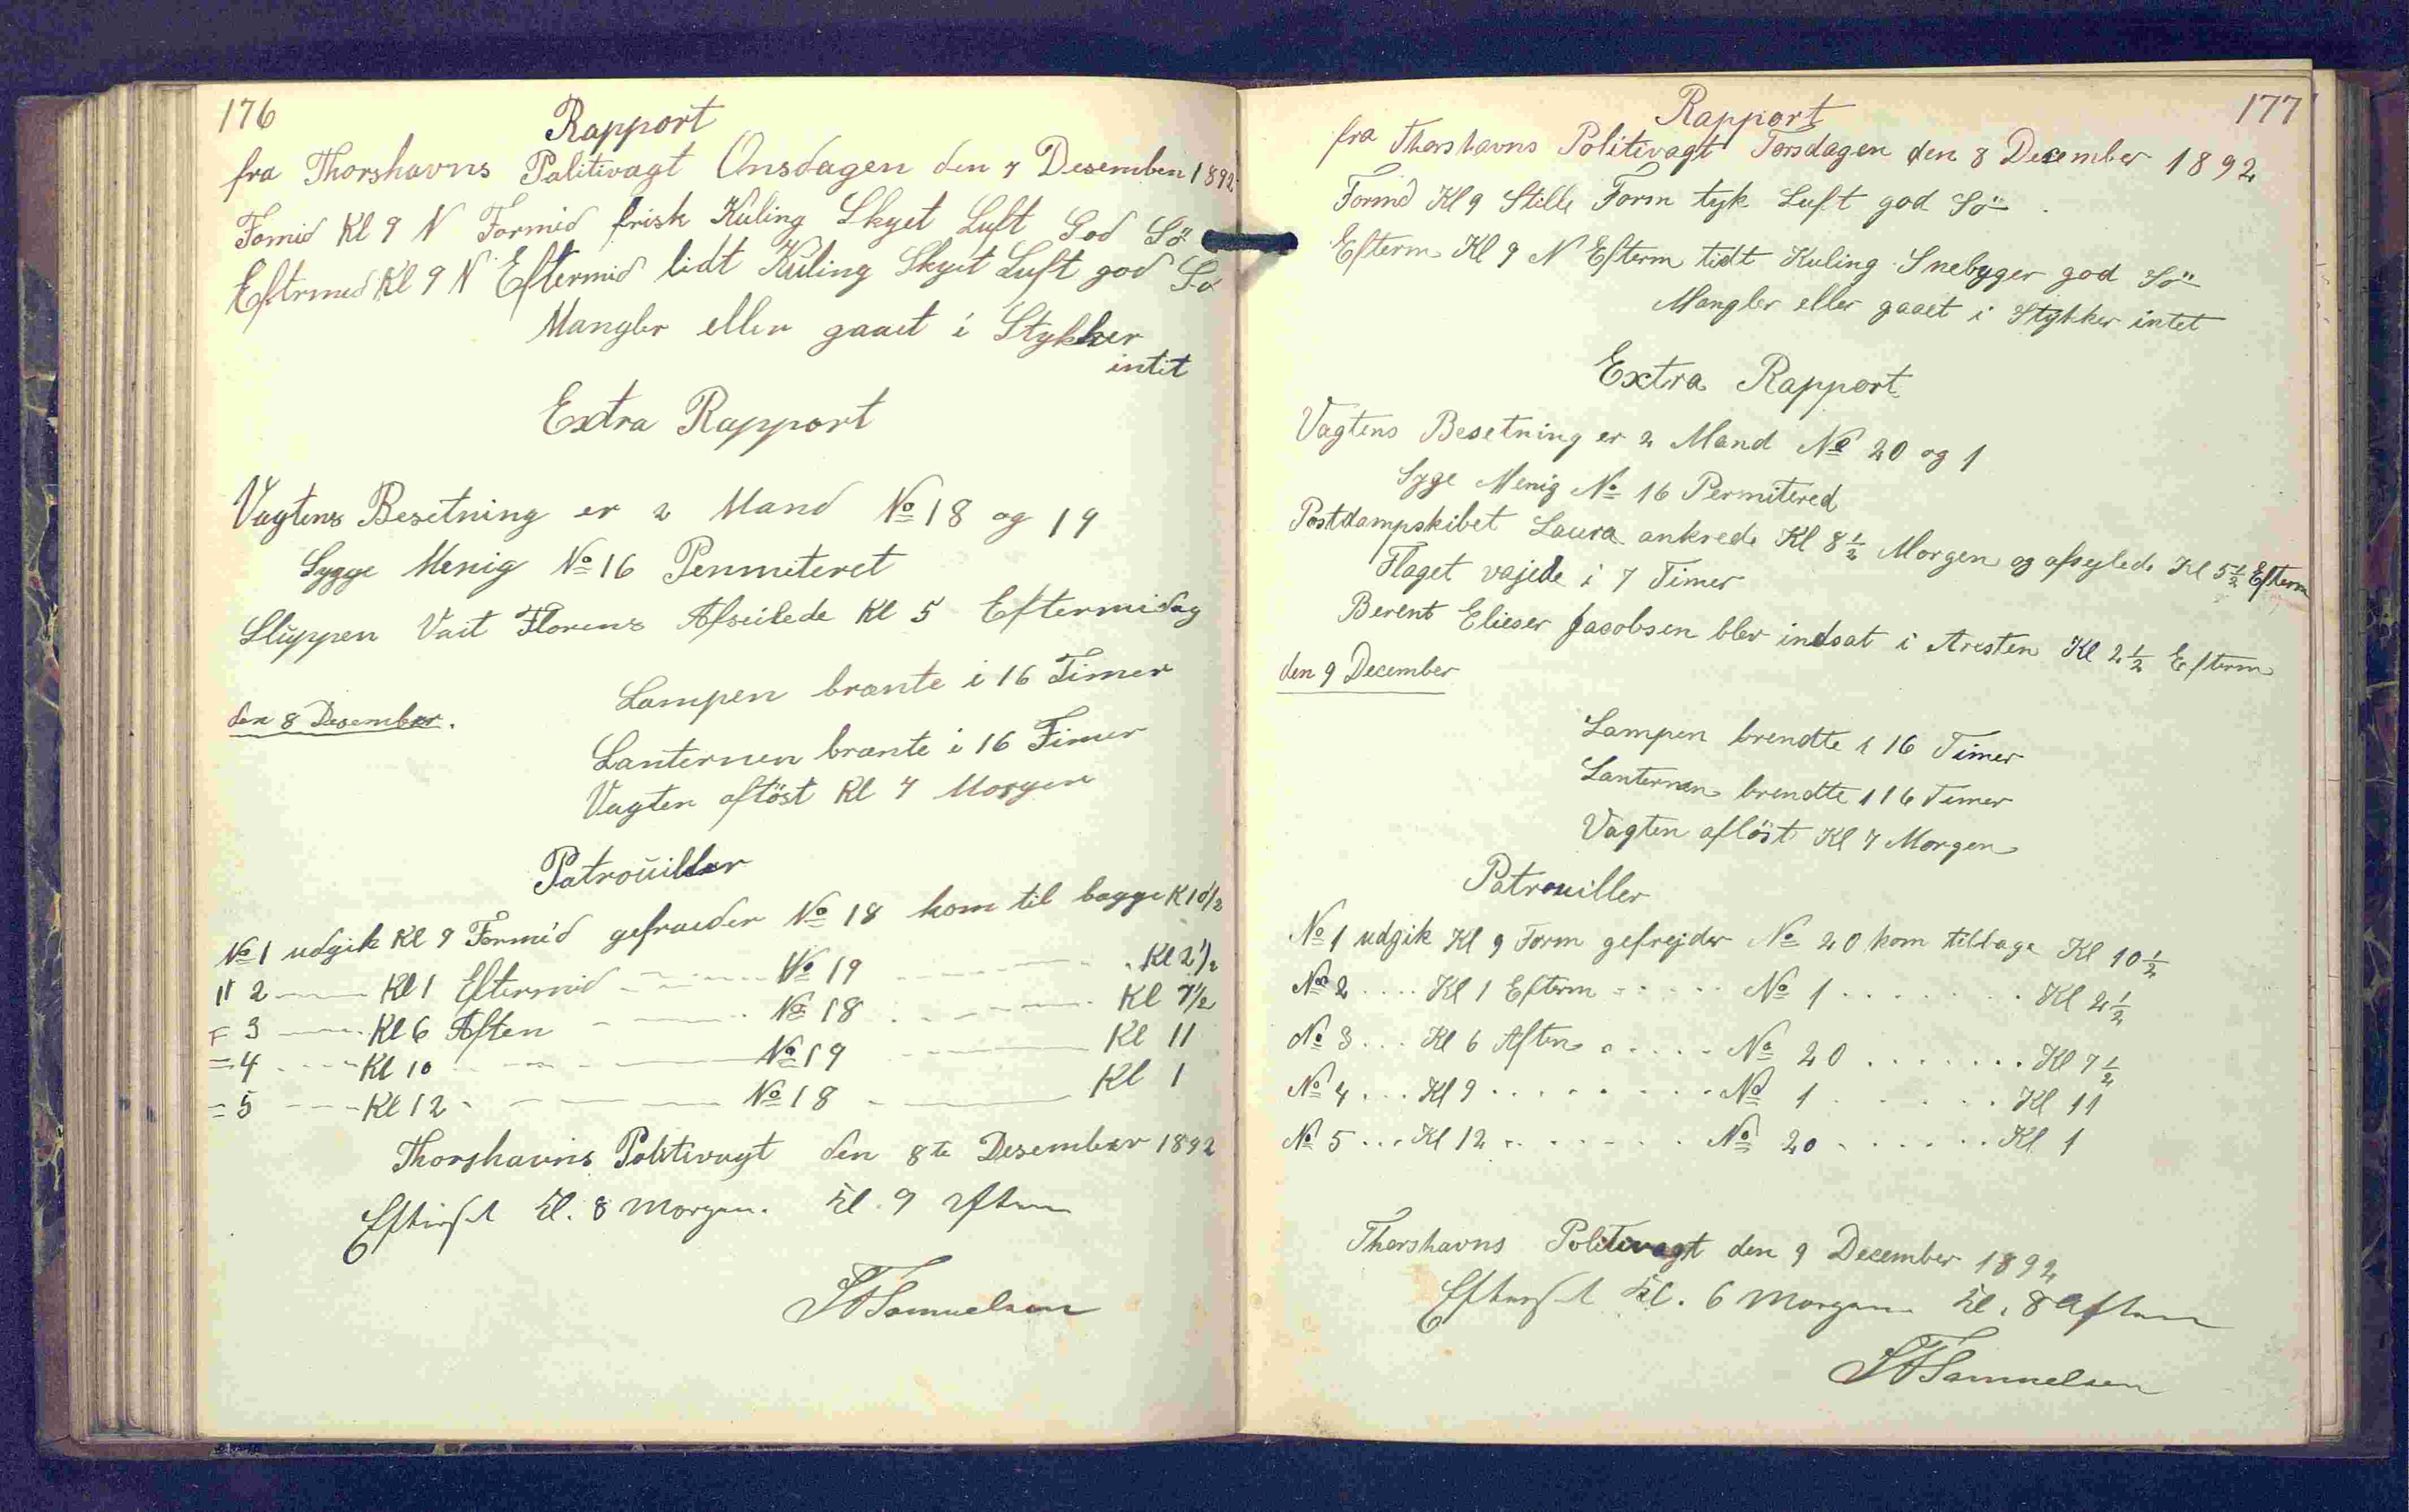 176
Rapport
fra Thorshavns Politivagt Onsdagen den 7 Desember 1892
Fomid Kl 9 N Formid frisk Kuling Skyet Luft God Sö
Eftrmed Kl 9 N Eftermid lidt Kuling Skyet Luft god Sö
Mangler eller gaaet i Stykker
intet
Extra Rapport
Vagtens Besetning er 2 Mand No 18 og 19
Sygge Menig No 16 Permiteret
Sluppen Vait Florens Afseilede Kl 5 Eftermidag
Lampen brænte i 16 Timer
den 8 Desember.
Lanternen brænte i 16 Timer
Vagten aflöst Kl 7 Morgen
Patrouiller
No 1 udgik Kl 9 Formid gefraider No 18 kom til bagge K 10½
" 2 Kl 1 Eftermid No 19 Kl 2½
= 3 Kl 6 Aften No 18 Kl 7½
= 4 Kl 10 No 19 Kl 11
= 5 Kl 12 No 18 Kl 1
Thorshavns Politivagt den 8te Desember 1892
Efterset Kl. 8 Morgen. Kl. 9 Aften
Samuelsen
177
Rapport
fra Thorshavns Politivagt Torsdagen den 8 December 1892
Formd Kl 9 Stille Form tyk Luft god Sö
Efterm Kl 9 N Efterm lidt Kuling Snebyger god Sö
Mangler eller gaaet i Stykker intet
Extra Rapport
Vagtens Besetning er 2 Mand No 20 og 1
Syge Menig No 16 Permitered
Postdampskibet Laura ankrede Kl 8½ Morgen og afsejlede Kl 5½ Efterm
Flaget vajede i 7 Timer
Berent Elieser Jacobsen blev indsat i Aresten Kl 2½ Efterm
den 9 December
Lampen brendte i 16 Timer
Lanternen brendte i 16 Timer
Vagten aflöst Kl 7 Morgen
Patrouiller
No 1 udgik Kl 9 Form gefrejder No 20 kom tilbage Kl 10½
No 2 .... Kl 1 Efterm ..... No 1 ....... Kl 2½
No 3 ... Kl 6 Aften ..... No 20 ....... Kl 7½
No 4 ... Kl 9 ........ No 1 ...... Kl 11
No 5 ... Kl 12 ...... No 20 ...... Kl 1
Thorshavns Politivagt den 9 December 1892
Efterset Kl. 6 Morgen Kl. 8 Aften
Samuelsen